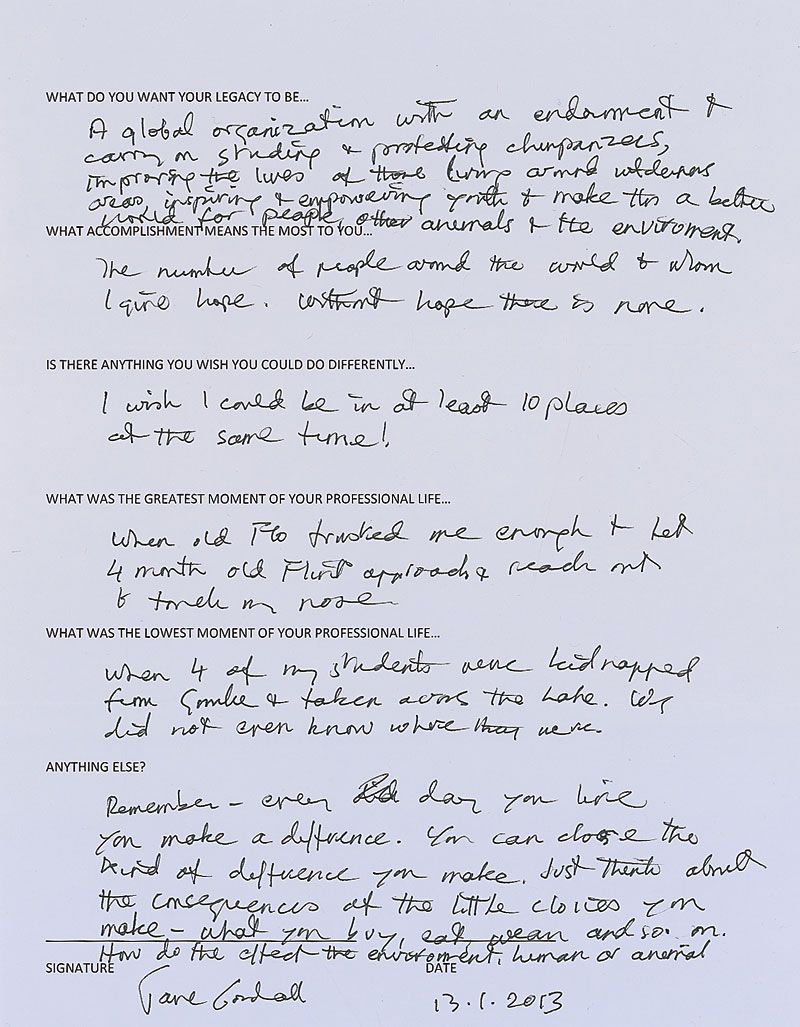 WHAT DO YOU WANT YOUR LEGACY TO BE...
A global organization with an endowment to
carry on studing & protecting chimpanzees,
improving the lives of those living around wilderness
areas, inspiring & empowering youth to make this a better
world for people, other animals & the enviroment.
WHAT ACCOMPLISHMENT MEANS THE MOST TO YOU...
The number of people around the world to whom
I give hope. Without hope there is none.
IS THERE ANYTHING YOU WISH YOU COULD DO DIFFERENTLY...
I wish I could be in at least 10 places
at the same time!
WHAT WAS THE GREATEST MOMENT OF YOUR PROFESSIONAL LIFE...
When old Flo trusted me enough to let
4 month old Flint approach & reach out
to touch my nose
WHAT WAS THE LOWEST MOMENT OF YOUR PROFESSIONAL LIFE...
When 4 of my students were kidnapped
from Gombe & taken across the lake. We
did not even know where they were.
ANYTHING ELSE?
Remember - every day you live
you make a difference. You can choose the
kind of difference you make. Just think about
the consequences of the little choices you
make - what you buy, eat, wear and so on.
How do the effect the enviroment, human or animal
SIGNATURE DATE
Jane Goodall 13.1.2013